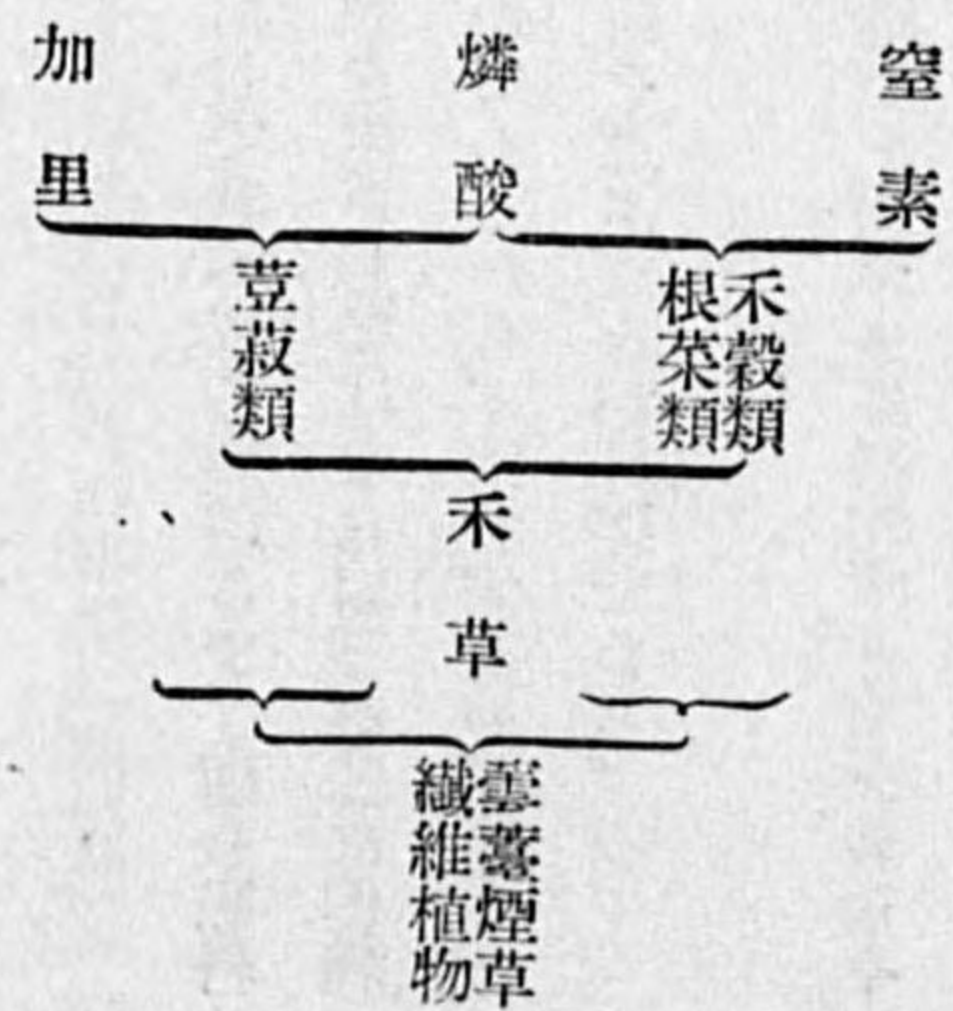 窒素
燐酸
加里
禾穀類
根菜類
荳菽類
禾草
蕓薹煙草
纎維植物